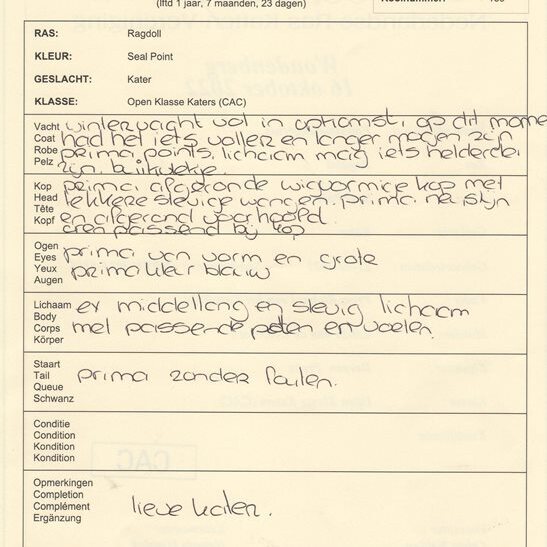 (lftd 1 jaar, 7 maanden, 23 dagen)
RAS: Ragdoll
KLEUR: Seal Point
GESLACHT: Kater
KLASSE: Open Klasse Katers (CAC)
Vacht wintervacht vol in opkomst, op dit mome
Coat had het iets voller en langer mogen zijn
Robe prima points, lichaam mag iets helderder
Pelz zijn, buikvlekje.
Kop prima afgeronde wigvormige kop met
Head lekkere stevige wangen. prima neuslijn
Tête en afgerond voorhoofd
Kopf oren passend bij kop
Ogen
Eyes prima van vorm en grote
Yeux prima kleur blauw
Augen
Lichaam er middellang en stevig lichaam
Body
Corps met passende poten en voeten.
Körper
Staart
Tail prima zonder fouten.
Queue
Schwanz
Conditie
Condition
Kondition
Kondition
Opmerkingen
Completion
Complément lieve kater.
Ergänzung
CAC